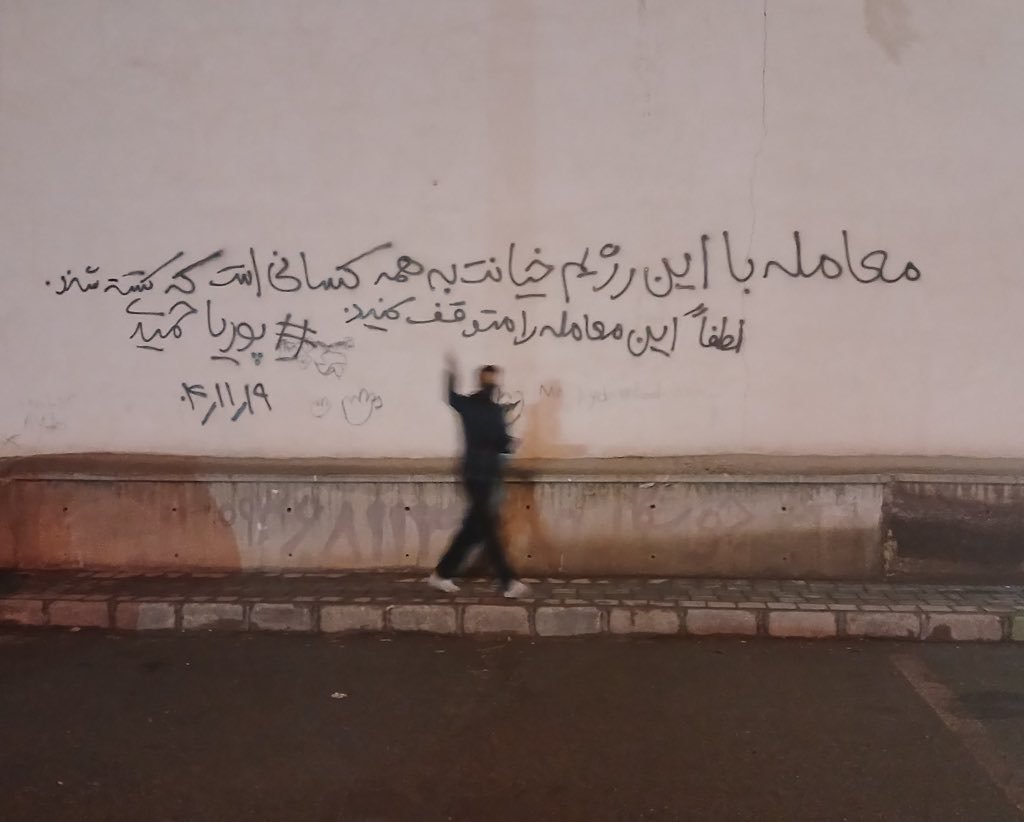 معامله با این رژیم خیانت به همه کسانی است که کشته شدند.
لطفاً این معامله را متوقف کنید.
#پوریا حمیدی
۰۴٫۱۱٫۱۹